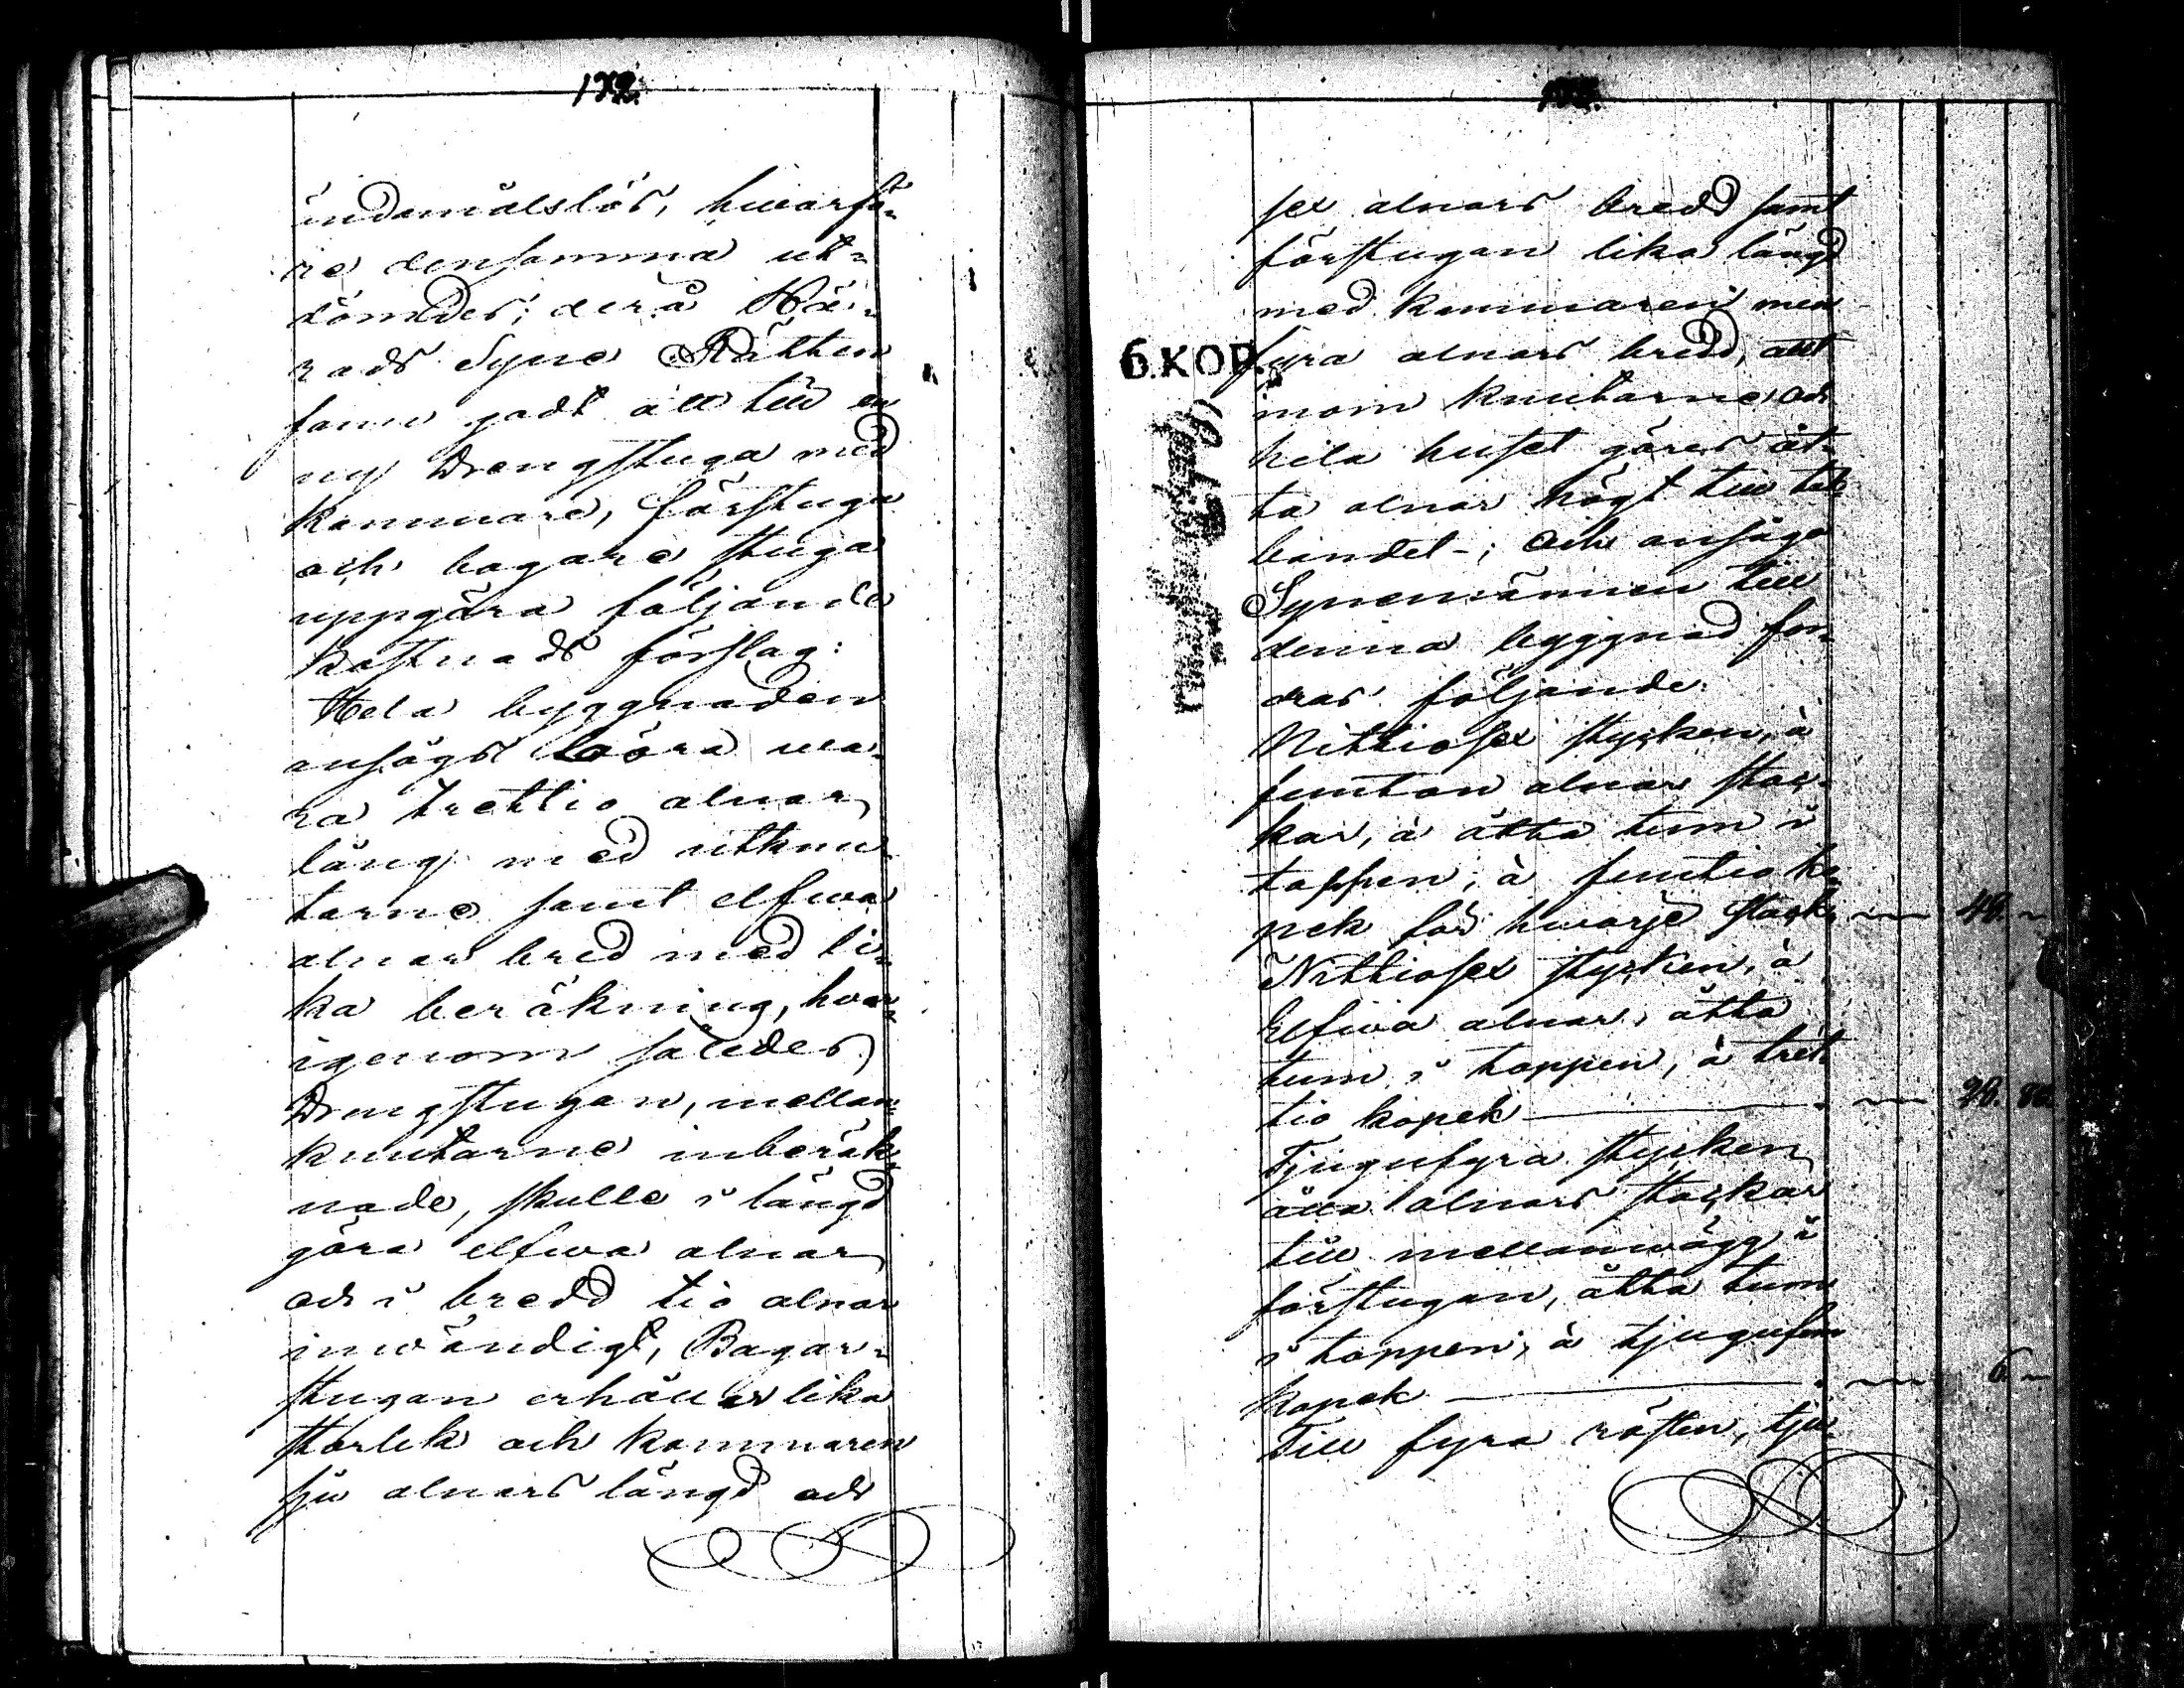 172.
ändamålslös, hwarfö¬
re densamma ut¬
dömdes; derå Hä¬
rads Syne Rätten
fann godt att till en
ny Drengstuga med
kammare, förstuga
och bagare stuga
uppgöra följande
kostnads förslag:
Hela byggnaden
ansågs böra wa¬
ra trettio alnar
lång med utknu¬
tarne samt elfwa
alnar bred med li¬
ka beräkning, hwar¬
igenom således
Drengstugan, mellan¬
knutarne inberäk¬
nade, skulle i längd
göra elfwa alnar
och i bredd tio alnar
inwändigt, Bagar¬
stugan erhåller lika
storlek och kammaren
sju alnars längd och
sex alnars bredd samt
förstugan lika längd
med kammaren men
6.KOP.
fyra alnars bredd, allt
inom knutarne och
hela huset göres åt¬
ta alnar högt till tak¬
bandet-; och ansågo
Synemännen till
denna byggnad for¬
dras följande:
Nittiosex stycken, à
femton alnar stoc¬
kar, à åtta tum i
toppen, à femtio ko¬
pek för hwarje stock 48. "
Nittiosex stycken, à
Elfwa alnar, åtta
tum i toppen, à tret¬
tio kopek 28. 80.
Tjugufyra stycken
åtta alnars stockar
till mellanwägg i
förstugan, åtta tum
i toppen, à tjugufem
kopek 6. "
Till fyra rösten, tju¬